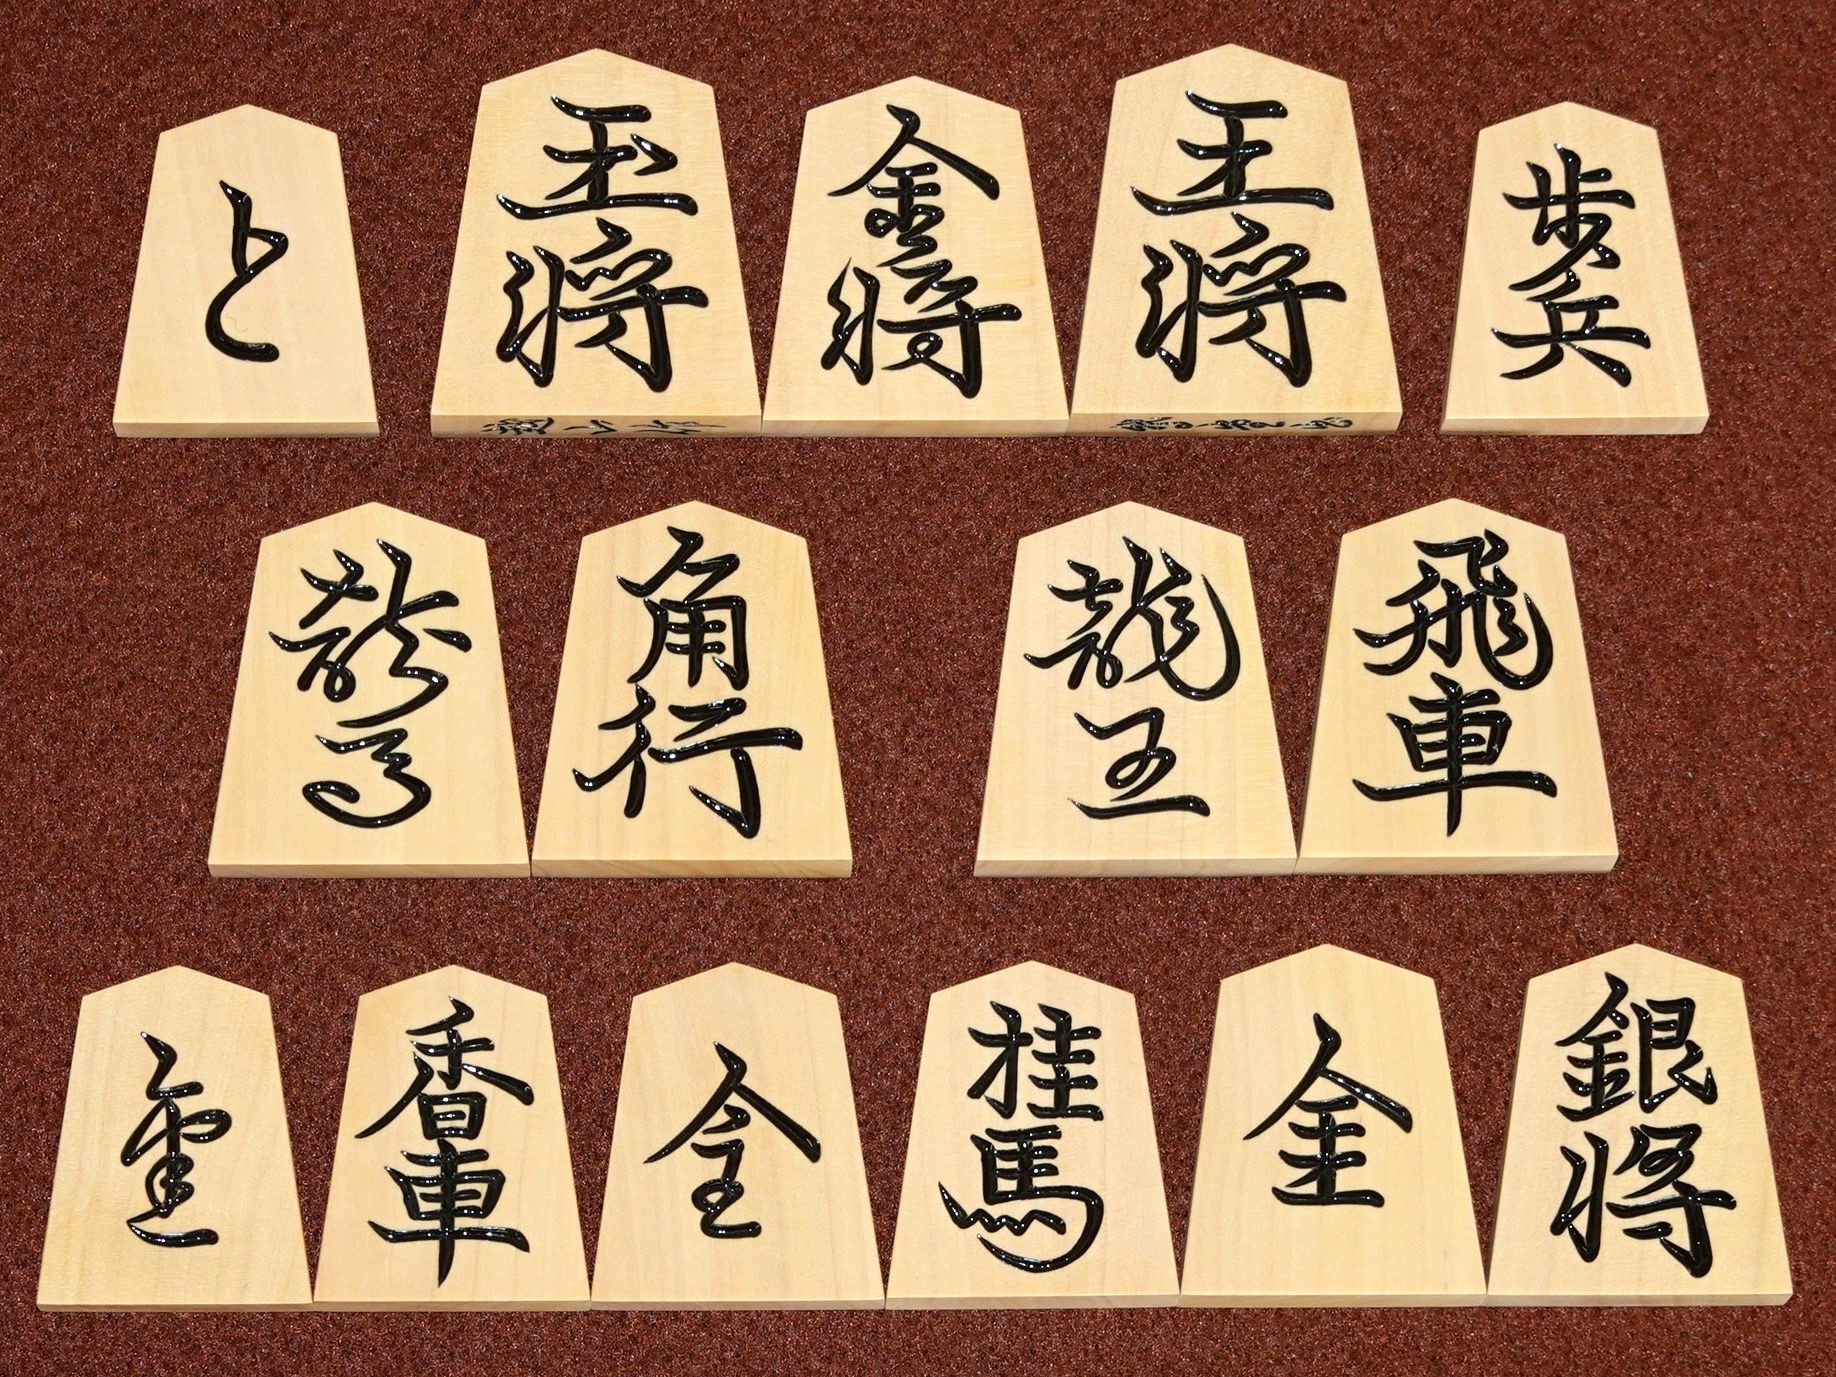 と
玉将
金将
王将
歩兵
龍馬
角行
龍王
飛車
金
香車
金
桂馬
金
銀将